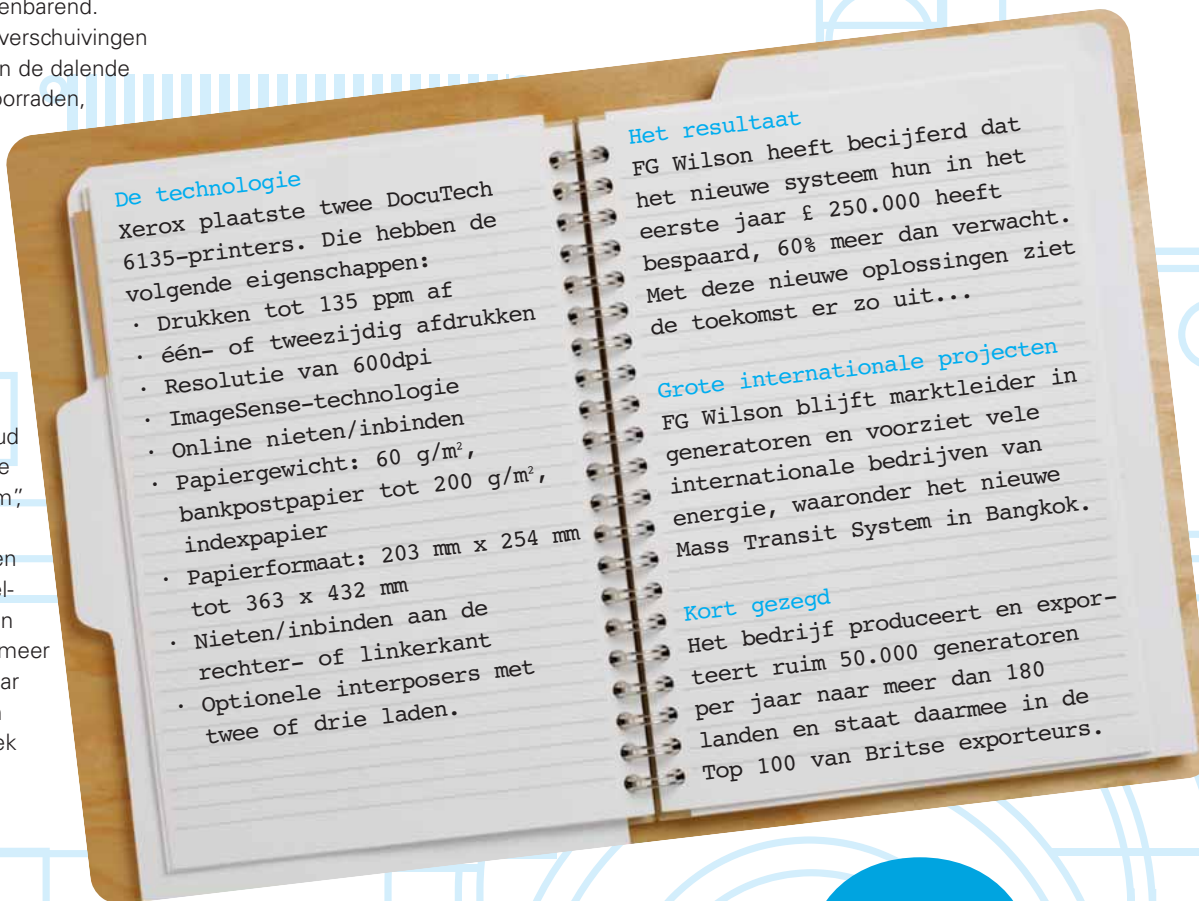 enbarend.
verschuivingen
n de dalende
orraden,
ud
e
m",
en
el-
n
meer
ar
n
ek
De technologie
Xerox plaatste twee DocuTech
6135-printers. Die hebben de
volgende eigenschappen:
· Drukken tot 135 ppm af
· één- of tweezijdig afdrukken
· Resolutie van 600dpi
· ImageSense-technologie
· Online nieten/inbinden
· Papiergewicht: 60 g/m²,
bankpostpapier tot 200 g/m²,
indexpapier
· Papierformaat: 203 mm x 254 mm
tot 363 x 432 mm
· Nieten/inbinden aan de
rechter- of linkerkant
· Optionele interposers met
twee of drie laden.
Het resultaat
FG Wilson heeft becijferd dat
het nieuwe systeem hun in het
eerste jaar £ 250.000 heeft
bespaard, 60% meer dan verwacht.
Met deze nieuwe oplossingen ziet
de toekomst er zo uit...
Grote internationale projecten
FG Wilson blijft marktleider in
generatoren en voorziet vele
internationale bedrijven van
energie, waaronder het nieuwe
Mass Transit System in Bangkok.
Kort gezegd
Het bedrijf produceert en expor-
teert ruim 50.000 generatoren
per jaar naar meer dan 180
landen en staat daarmee in de
Top 100 van Britse exporteurs.